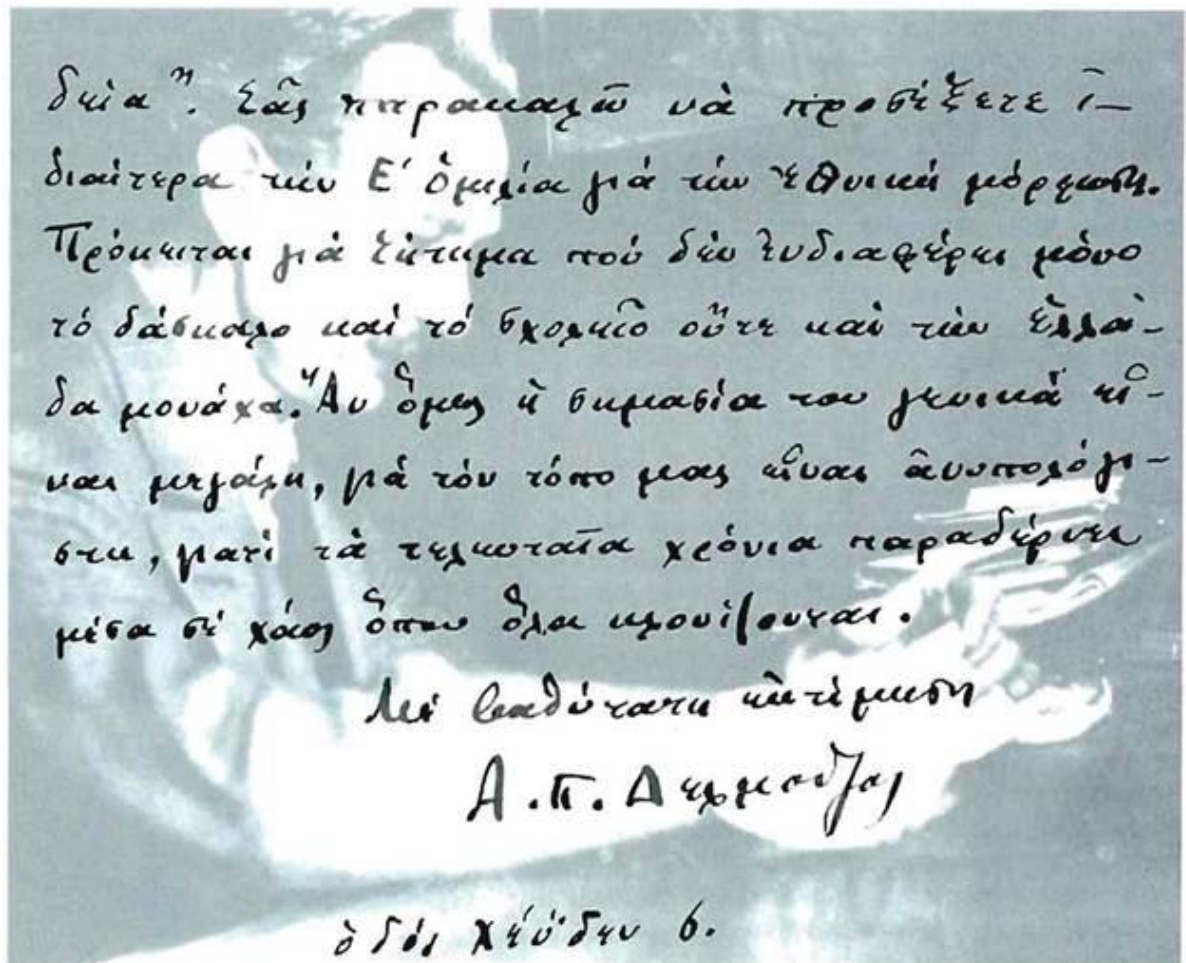 δεία". Σᾶς παρακαλῶ νὰ προσέξετε ἰ-
διαίτερα τὴν Ε´ ὁμιλία γιὰ τὴν ἐθνικὴ μόρφωση.
Πρόκειται γιὰ ζήτημα ποὺ δὲν ἐνδιαφέρει μόνο
τὸ δάσκαλο καὶ τὸ σχολεῖο οὔτε καὶ τὴν Ἑλλά-
δα μονάχα. Ἂν ὅμως ἡ σημασία του γενικὰ εἶ-
ναι μεγάλη, γιὰ τὸν τόπο μας εἶναι ἀνυπολόγι-
στη, γιατὶ τὰ τελευταῖα χρόνια παραδέρνει
μέσα σὲ χάος ὅπου ὅλα κλονίζουνται.
Μὲ βαθύτατη ἐκτίμηση
Α. Π. Δελμοῦζος
ὁδὸς Χέϋδεν 6.